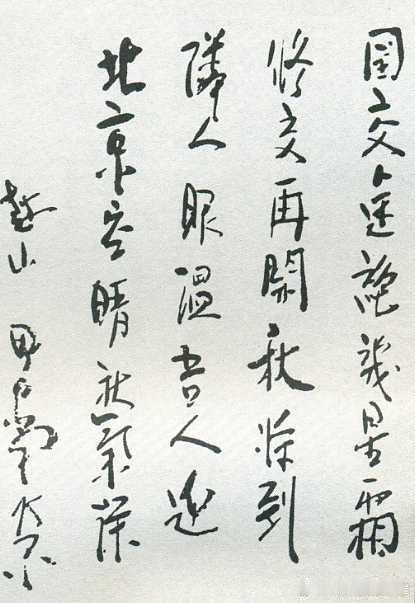 国交途絶幾星霜
修交再開秋将到
隣人眼温吾人迎
北京空晴秋気深
越山 田中角栄